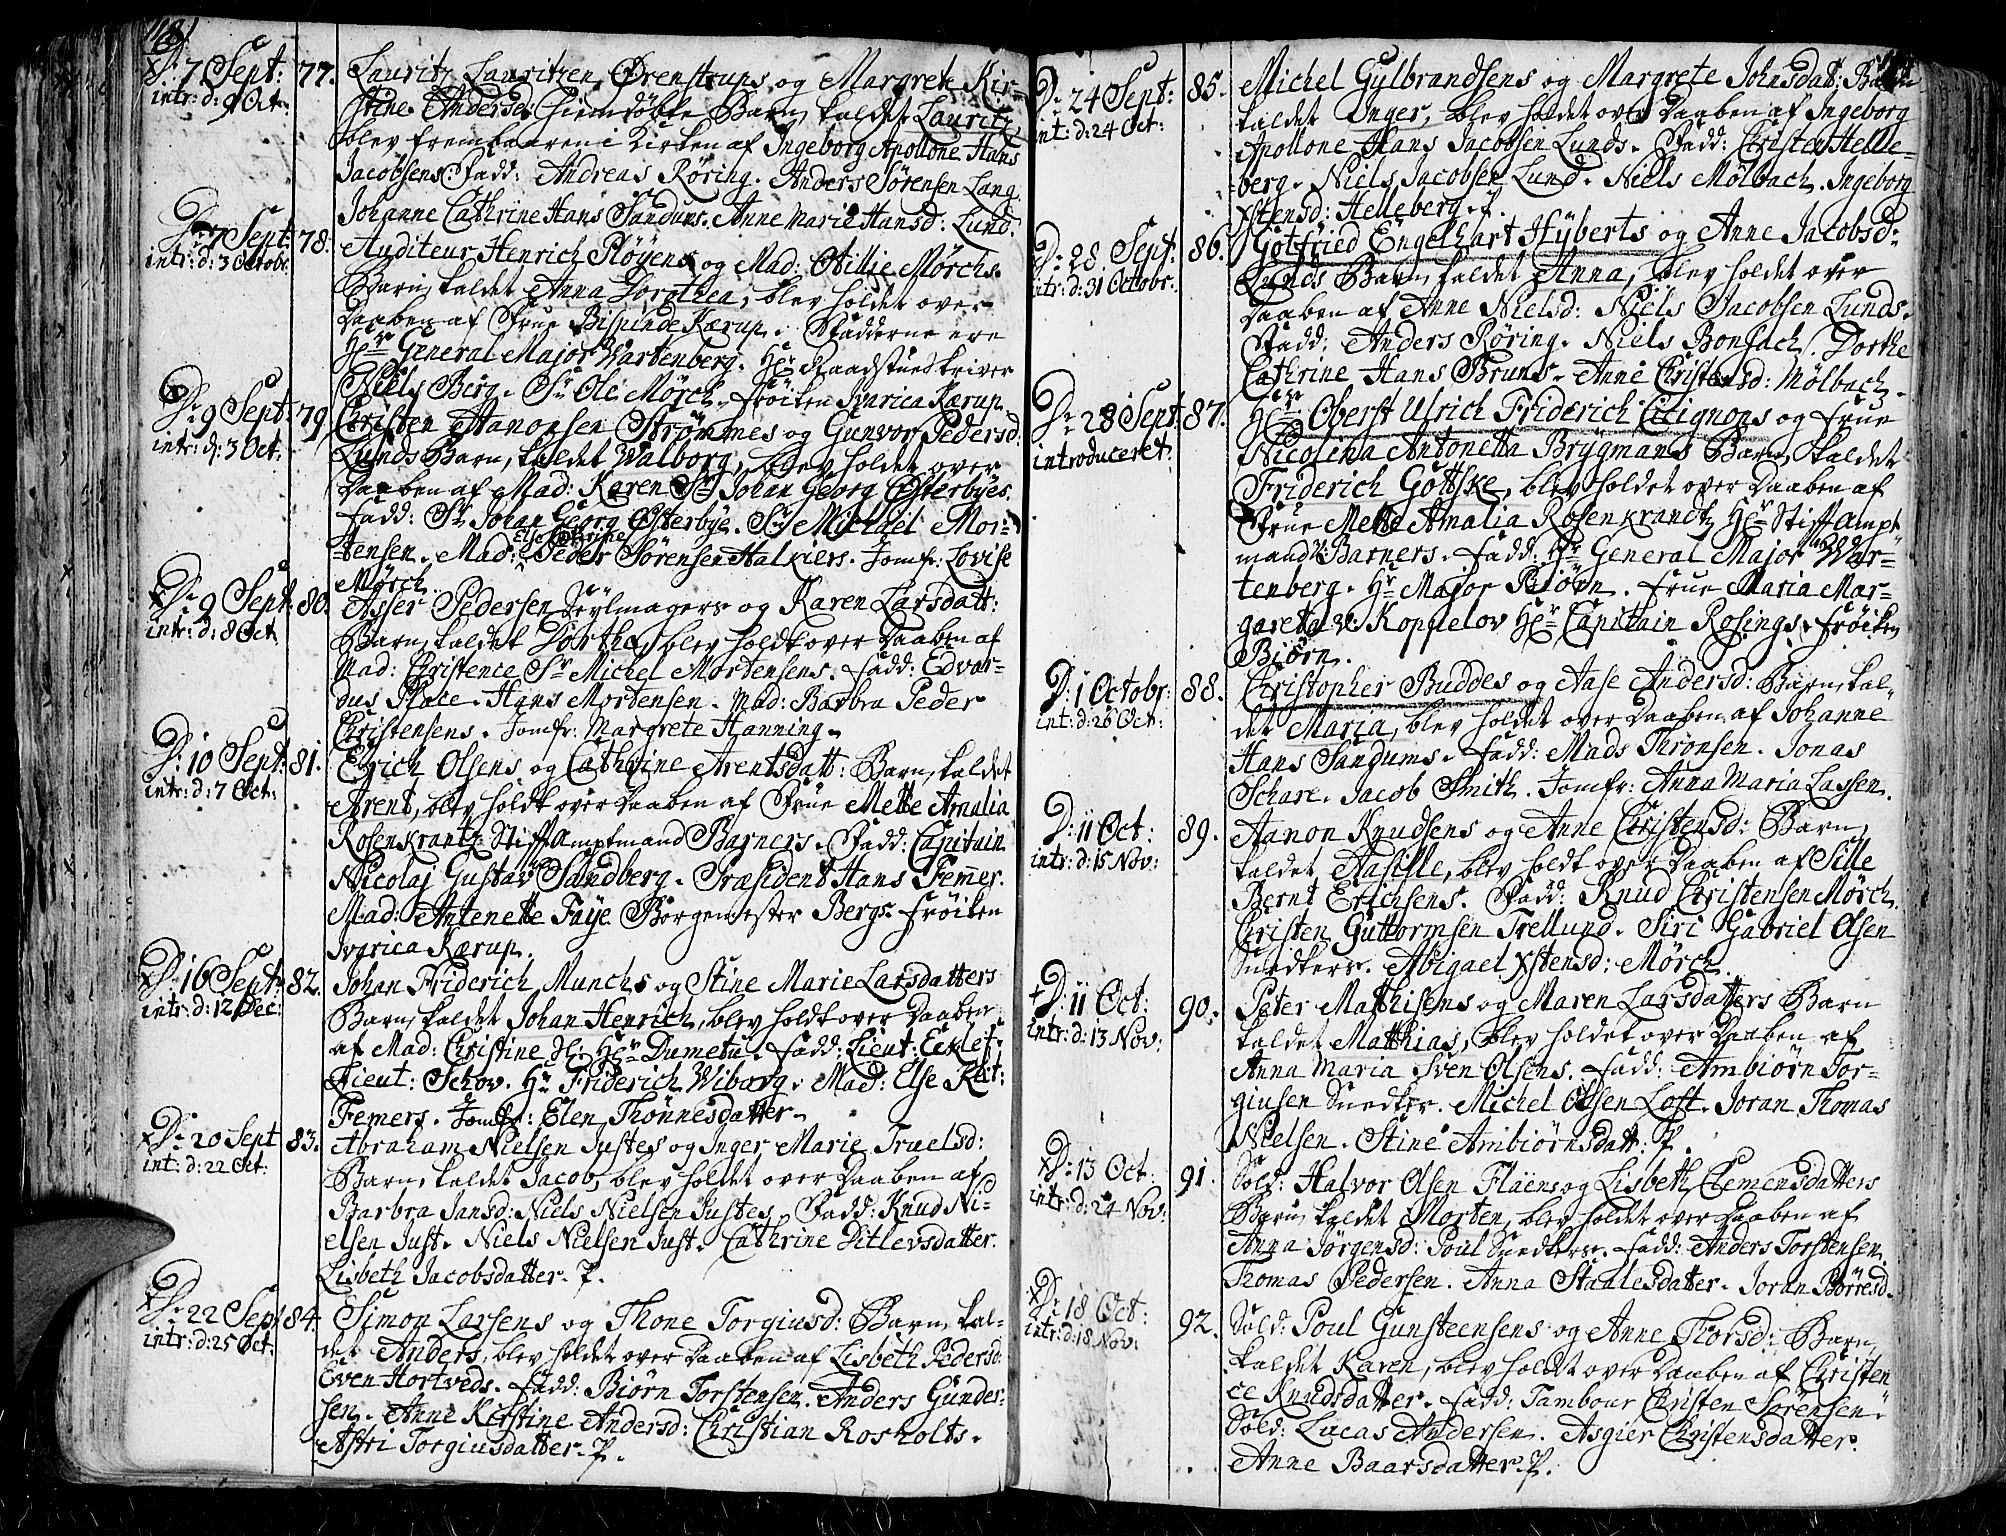 D: 7 Sept: 77. Lauritz Lauritzen Ørenstrups og Margrete Kir-
intr: d: 9 Oct: stine Andersen Hiemdøbte Barn, kaldet Lauritz,
blev frembaaren i Kirken af Ingeborg Apollone Hans
Jacobsens. Fadd: Andreas Røring. Anders Sørensen Lang.
Johanne Cathrine Hans Sandums. Anne Marie Hansd: Lund.
D: 7 Sept: 78. Auditeur Henrich Pløyens og Mad: Oillie Mörchs
intr: d: 3 Octobr: Barn, kaldet Anna Dorothea, blev holdet over
Daaben af Frue Bispinde Kærup. Fadderne ere
Hr General Major Wartenberg. Hr Raadstueskriver
Niels Berg. Sr Ole Mörch. Frøiken Ivarica Kærup.
D: 9 Sept: 79. Christen Aanonsen Strømmes og Gunvor Pedersd:
intr: d: 3 Oct: Lunds Barn, kaldet Walborg, blev holdet over
Daaben af Mad: Karen Sr Johan Georg Österbyes.
Fadd: Sr Johan Georg Österbye. Sr Michael Mor-
tensen. Mad: Else Cathrine Peder Sørensen Halkiers. Jomfr: Lovise
Mørch.
D: 9 Sept: 80. Asser Pedersen Seylmagers og Karen Larsdatt:
intr: d: 8 Oct: Barn, kaldet Dorthe, blev holdt over Daaben af
Mad: Christence Sr Michel Mortensens. Fadd: Edvar-
dus Place. Hans Mortensen. Mad: Barbra Peder
Christensens. Jomfr: Margrete Hanning.
D: 10 Sept: 81. Erich Olsens og Cathrine Arentsdatt: Barn, kaldet
intr: d: 7 Oct: Arent, blev holdt over Daaben af Frue Mette Amalia
Rosenkrantz Stiftamptmand Barners. Fadd: Capitain
Nicolaj Gustav Sandberg. Præsident Hans Femer.
Mad: Antenette Faye Borgemester Bergs. Frøiken
Ivarica Kærup.
D: 16 Sept: 82. Johan Friderich Munchs og Stine Marie Larsdatters
intr: d: 12 Dec: Barn, kaldet Johan Henrich, blev holdt over Daaben
af Mad: Christine Hr Dumetu. Fadd: Lieut: Eeklef.
Lieut: Schov. Hr Friderich Wiborg. Mad: Else
Femers. Jomfr: Elen Thönnesdatter.
D: 20 Sept 83. Abraham Nielsen Justes og Inger Marie Truelsd:
int: d: 22 Oct: Barn, kaldet Jacob, blev holdet over Daaben af
Barbra Jansd: Niels Nielsen Justes. Fadd: Knud Ni-
elsen Just. Niels Nielsen Just. Cathrine Ditlevsdatter.
Lisbeth Jacobsdatter. P.
D: 22 Sept 84. Simon Larsens og Thone Torgiusd: Barn, kal-
intr: d: 25 Oct: det Anders, blev holdet over Daaben af Lisbeth Pedersd:
Even Hortveds. Fadd: Biørn Torstensen. Anders Gunder-
sen. Anne Kirstine Andersd: Christian Rosholts.
Astri Torgiusdatter. P.
D: 24 Sept: 85. Michel Gulbrandsens og Margrete Johnsdatt: Barn
int: d: 24 Oct: kaldet Inger, blev holdet over Daaben af Ingeborg
Apollone Hans Jacobsen Lunds. Fadd: Christen Helle-
berg. Niels Jacobsen Lund. Niels Mölbach. Ingeborg
Xstensd: Helleberg. P.
D: 28 Sept: 86. Gotfried Engelhart Hÿberts og Anne Jacobsd:
intr: d: 31 Octobr: Lunds Barn, kaldet Anna, blev holdet over
Daaben af Anne Nielsd: Niels Jacobsen Lunds.
Fadd: Anders Røring. Niels Bonsach. Dorthe
Cathrine Hans Bruns. Anne Christensd: Mölbach.
D: 28 Sept: 87. Hr Oberst Ulrich Friderich Cicignons og Frue
introduceret: Nicolina Antonetta Brÿgmans Barn, kaldet
Friderich Göttske, blev holdet over Daaben af
Frue Mette Amalia Rosenkrandtz Hr Stiftampt-
mand v: Barners. Fadd: Hr General Major War-
tenberg. Hr Major Biørn. Frue Maria Mar-
gareta v: Koppelov Hr Capitain Rosings. Frøiken
Biørn.
D: 1 Octobr: 88. Christopher Buddes og Aase Andersd: Barn, kal-
int: d: 26 Oct: det Maria, blev holdet over Daaben af Johanne
Hans Sandums. Fadd: Mads Thronsen. Jonas
Schare. Jacob Smith. Jomfr: Anna Maria Lassen.
D: 11 Oct: 89. Aanon Knudsens og Anne Christensd: Barn,
intr: d: 15 Nov: kaldet Aasille, blev holdt over Daaben af Sille
Bernt Erichsens. Fadd: Knud Christensen Mörch.
Christen Guttormsen Trellund. Siri Gabriel Olsen
Snedkers. Abigael Xstensd: Mörch.
D: 11 Oct: 90. Peter Mathisens og Maren Larsdatters Barn
intr: d: 13 Nov: kaldet Matthias, blev holdet over Daaben af
Anna Maria Sven Olsens. Fadd: Ambiørn Tor-
giusen Snedker. Michel Olsen Loft. Joran Thomas
Nielsen. Stine Ambiørnsdatt: P.
D: 13 Oct: 91. Sold: Halvor Olsen Flaens og Lisbeth Clemensdatters
intr: d: 24 Nov: Barn, kaldet Morten, blev holdet over Daaben af
Anna Jörgensd: Poul Snedkers. Fadd: Anders Torstensen.
Thomas Pedersen. Anna Staalesdatter. Joran Börresd.
D: 18 Oct: 92. Sold: Poul Gunsteensens og Anne Thorsd: Barn,
intr: d: 18 Nov: kaldet Karen, blev holdet over Daaben af Christen-
ce Knudsdatter. Fadd: Tambour Christen Sørensen.
Sold: Lucas Andersen. Asgier Christensdatter.
Anne Baarsdatter. P.